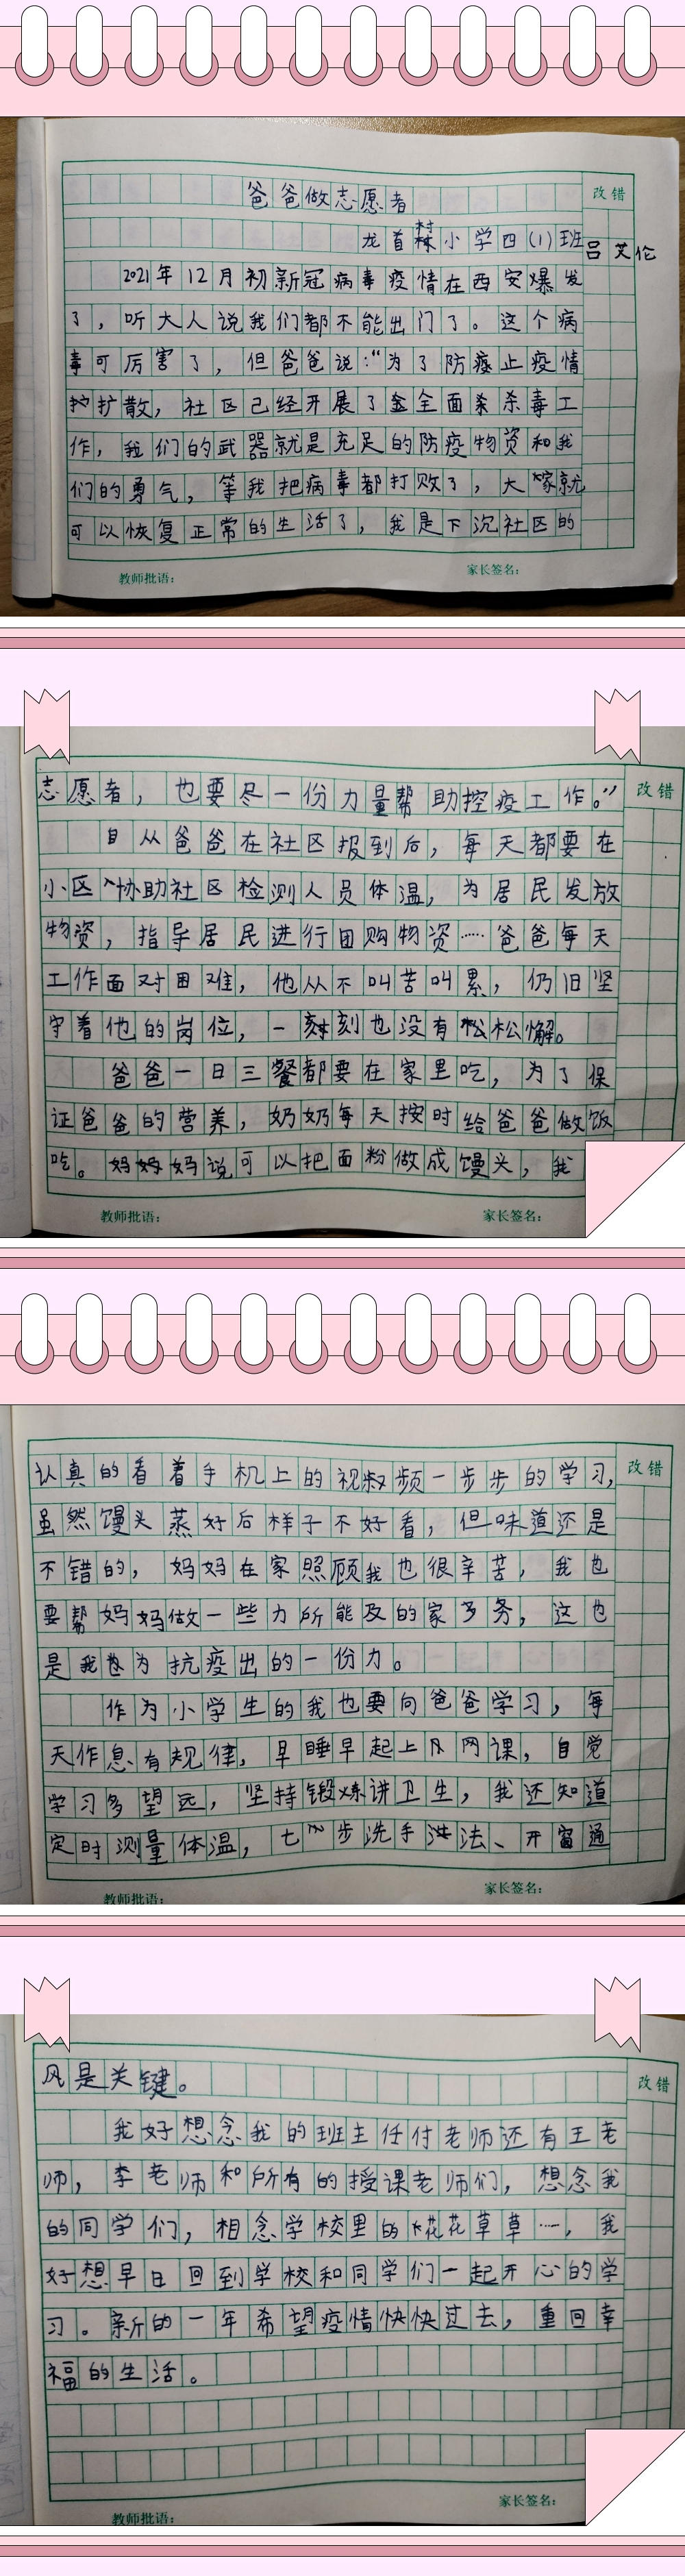 爸爸做志愿者
改错
龙首村小学四(1)班吕艾伦
2021年12月初新冠病毒疫情在西安爆发
了，听大人说我们都不能出门了。这个病
毒可厉害了，但爸爸说：“为了防止疫情
扩散，社区已经开展了全面杀毒工
作，我们的武器就是充足的防疫物资和我
们的勇气，等我把病毒都打败了，大家就
可以恢复正常的生活了，我是下沉社区的
教师批语：
家长签名：
志愿者，也要尽一份力量帮助控疫工作。”
改错
自从爸爸在社区报到后，每天都要在
小区协助社区检测人员体温，为居民发放
物资，指导居民进行团购物资……爸爸每天
工作面对困难，他从不叫苦叫累，仍旧坚
守着他的岗位，一刻也没有松懈。
爸爸一日三餐都要在家里吃，为了保
证爸爸的营养，奶奶每天按时给爸爸做饭
吃。妈妈说可以把面粉做成馒头，我
教师批语：
家长签名：
认真的看着手机上的视频一步步的学习，
改错
虽然馒头蒸好后样子不好看，但味道还是
不错的，妈妈在家照顾我也很辛苦，我也
要帮妈妈做一些力所能及的家务，这也
是我为抗疫出的一份力。
作为小学生的我也要向爸爸学习，每
天作息有规律，早睡早起上网课，自觉
学习多望远，坚持锻炼讲卫生，我还知道
定时测量体温，七步洗手法、开窗通
教师批语：
家长签名：
风是关键。
改错
我好想念我的班主任付老师还有王老
师，李老师和所有的授课老师们，想念我
的同学们，想念学校里的花花草草…，我
好想早日回到学校和同学们一起开心的学
习。新的一年希望疫情快快过去，重回幸
福的生活。
家长签名：
教师批语：